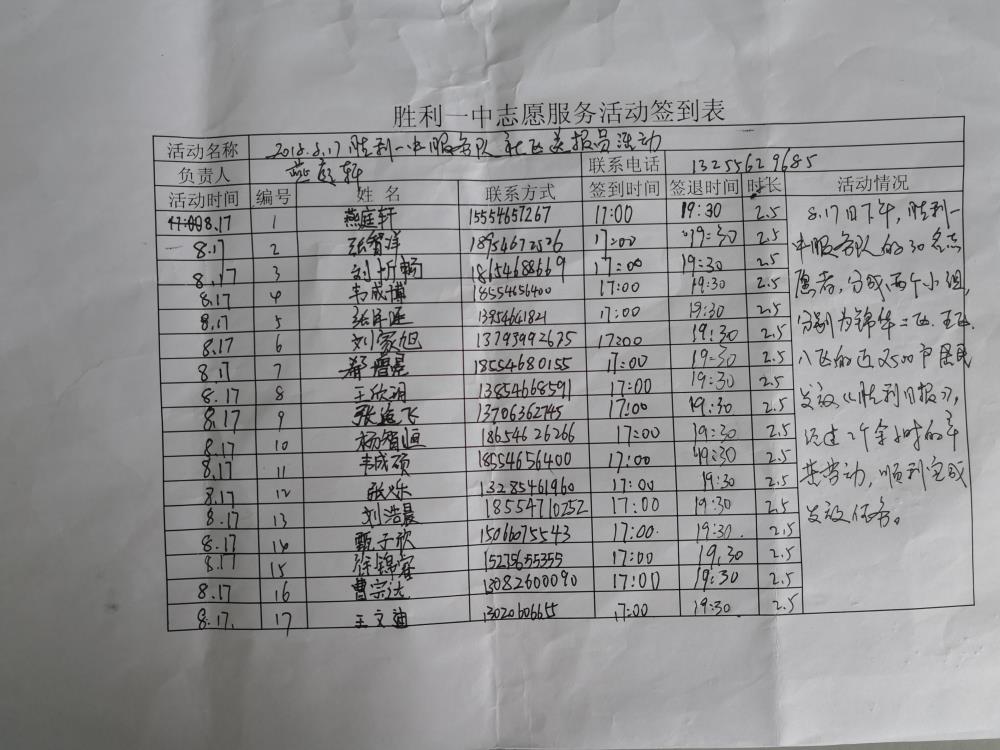 胜利一中志愿服务活动签到表
活动名称 2018.8.17胜利一中服务队 送报员活动
负责人 燕庭轩 联系电话 13255629685
活动时间 编号 姓名 联系方式 签到时间 签退时间 时长 活动情况
8.17 1 燕庭轩 15554657267 17:00 19:30 2.5
8.17 2 张智洋 18954672526 17:00 19:30 2.5
8.17 3 刘忻畅 186154688669 17:00 19:30 2.5
8.17 4 韦成博 18554656400 17:00 19:30 2.5
8.17 5 13954641821 17:00 19:30 2.5
8.17 6 刘家旭 13793992675 17:00 19:30 2.5
8.17 7 18554680155 17:00 19:30 2.5
8.17 8 王欣玥 13854668591 17:00 19:30 2.5
8.17 9 张逸飞 13706362745 17:00 19:30 2.5
8.17 10 杨智恒 18654626266 17:00 19:30 2.5
8.17 11 韦成硕 18554656400 17:00 19:30 2.5
8.17 12 张烁 13285461960 17:00 19:30 2.5
8.17 13 刘浩晨 18554710252 17:00 19:30 2.5
8.17 14 甄子欣 15066075543 17:00 19:30 2.5
8.17 15 徐锦 15275655355 17:00 19,30 2.5
8.17 16 曹宗达 13082600090 17:00 19:30 2.5
8.17. 17 王文迪 13020606655 17:00 19:30 2.5
8.17日下午，胜利一
中服务队的30名志
愿者，分成两个小组，
分别为锦华二区、五区、
八区的近2500户居民
发放《胜利日报》，
经过2个余小时的辛
苦劳动，顺利完成
发放任务。